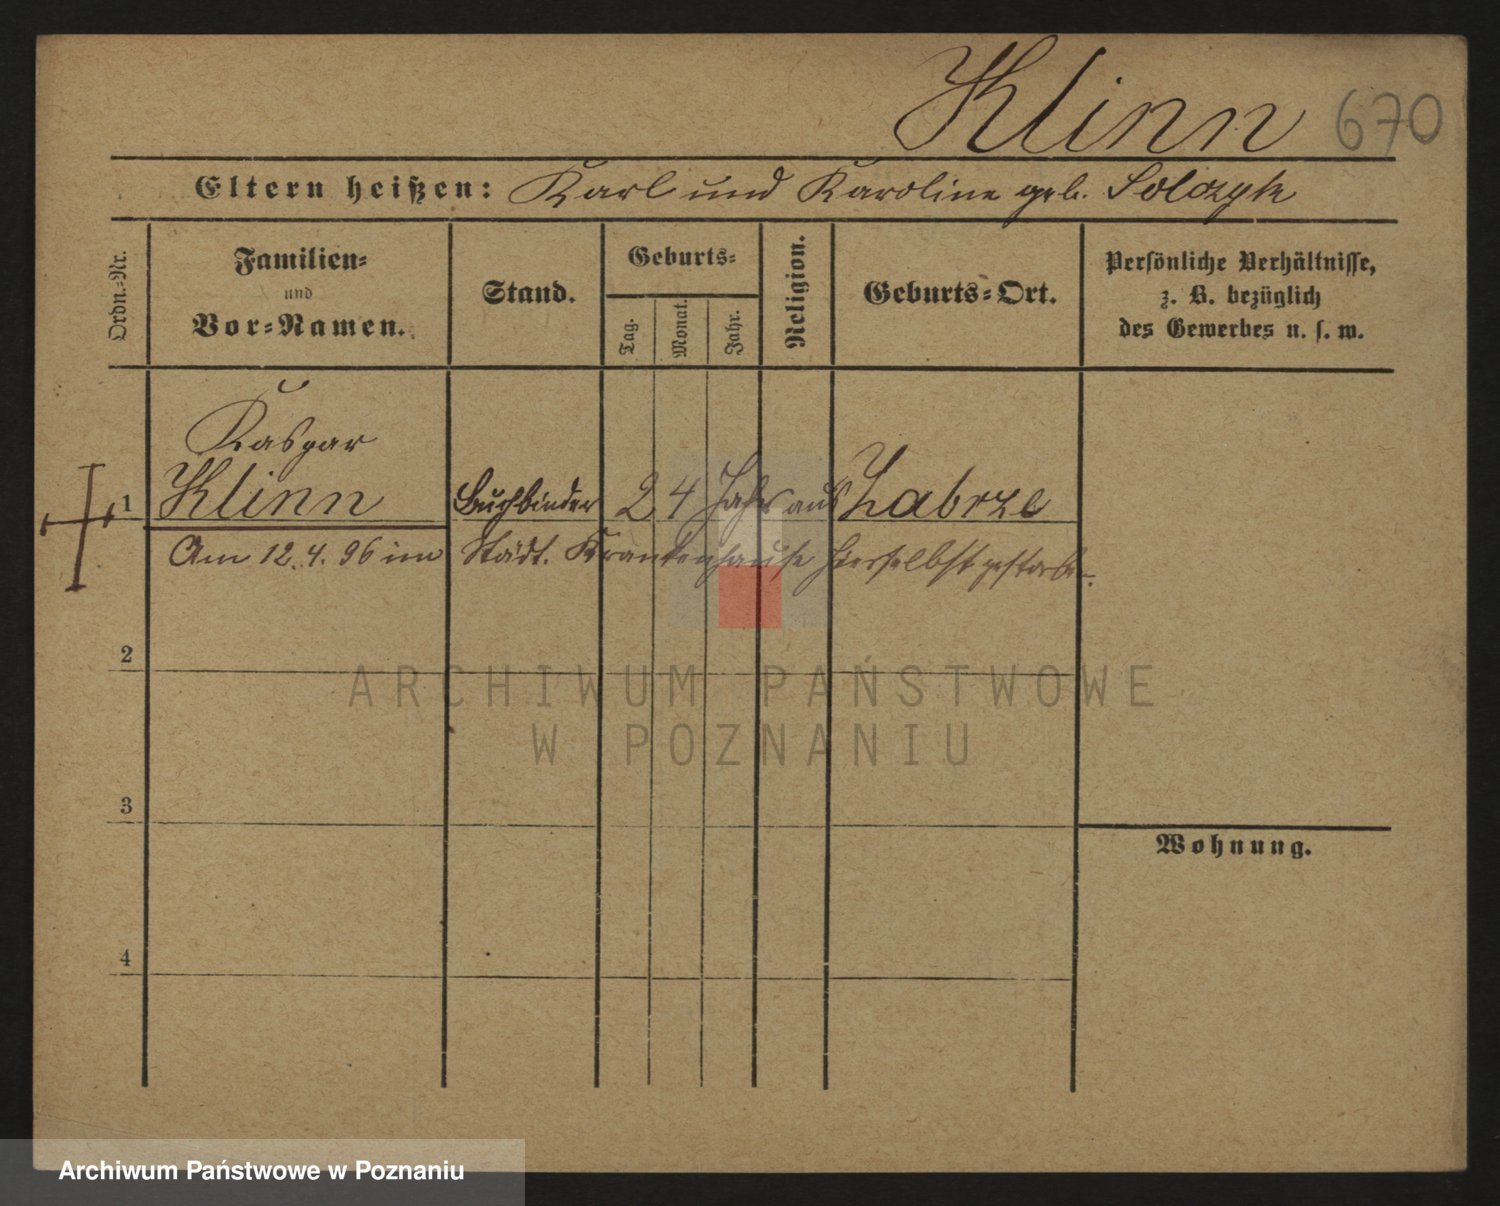 Klinn 670
Eltern heißen: Karl und Karoline geb. Solczyk
Ordn.-Nr.
Familien-
und
Vor-Namen.
Stand.
Geburts-
Tag.
Monat.
Jahr.
Religion.
Geburts-Ort.
Persönliche Verhältnisse,
z. B. bezüglich
des Gewerbes u. s. w.
Kaspar
1 Klinn Buchbinder 24 Jahr aus Zabrze
Am 12.4.96 im Städt. Krankenhause hierselbst gestorben.
2
ARCHIWUM PAŃSTWOWE
W POZNANIU
3
Wohnung.
4
Archiwum Państwowe w Poznaniu